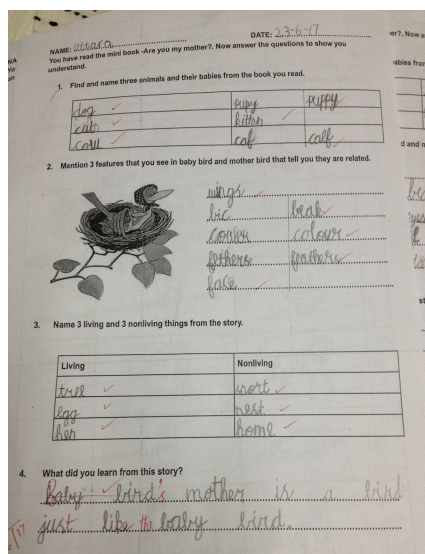 NAME: Uttara
DATE: 23-6-17
er?. Now a
You have read the mini book -Are you my mother?. Now answer the questions to show you
understand.
NA
Yo
un
abies fror
1. Find and name three animals and their babies from the book you read.
dog pupy puppy
catt kitten
cow caf calf
d and n
2. Mention 3 features that you see in baby bird and mother bird that tell you they are related.
wings
bic beak
couler colour
fethers feathers
face
st
3. Name 3 living and 3 nonliving things from the story.
Living Nonliving
tree snort
egg nest
hen home
4. What did you learn from this story?
Baby bird's mother is a bird
just like the baby bird.